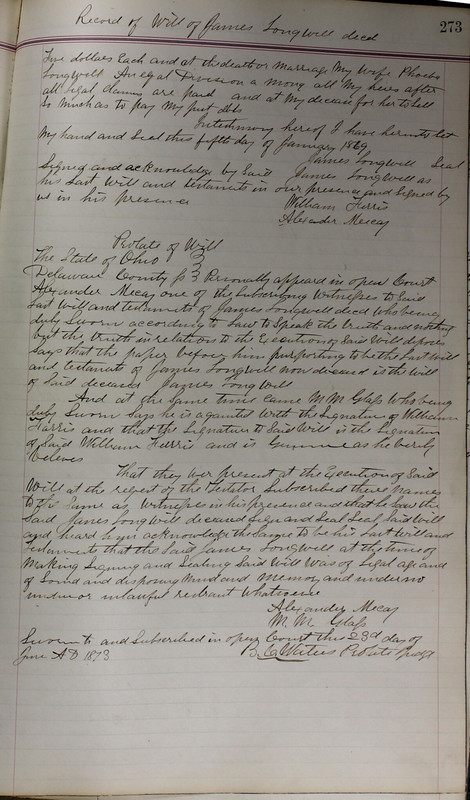 273
Record of Will of James Longwell decd
Five dollars Each and at the death or Marriage My Wife Phoebe
Longwell An Eqal Division a mong all My heirs after
all legal claims are paid and at My decease for her to sell
so much as to pay My just debts
In testimony hereof I have hereunto set
My hand and Seal this fifth day of January 1869
James Longwell Seal
Signed and acknowledge by Said James Longwell as
his Last Will and testament in our presence and Signed by
us in his presence
William Harris
Alexander Mecay
Probate of Will
The State of Ohio
Delaware County ss Personally appeard in open Court
Alexander Mecay one of the Subscribing Witnesses to Said
Last Will and testament of James Longwell decd Who being
duly Sworn according to Law to Speak the truth and nothing
but the truth in relation to the Execution of Said Will deposes
Says that the paper before him purporting to be the Last Will
and testament of James Longwell now deceased is the Will
of Said deceased James Longwell
And at the Same time came M M Glass Who being
duly Sworn Says he is aquanted With the Signature of William
Harris and that the Signature to Said Will is the Signature
of Said William Harris and is as he verily
believes
That they wer present at the Execution of Said
Will at the reqest of the Testator Subscribed there names
to the Same as Witnesses in his presence and that he Saw the
Said James Longwell deceased Sign and Seal Said Will
and heard him acknowledge the Same to be his Last Will and
Testament that the Said James Longwell at the time of
Making Signing and Sealing Said Will Was of Legal age and
of Sound and disposing Mind and Memory and under no
undue or unlawful restrant Whatsoever
Alexander Mecay
M. M. Glass
Sworn to and Subscribed in open Court this 23d day of
June AD 1873 B. C. Waters Probate Judge